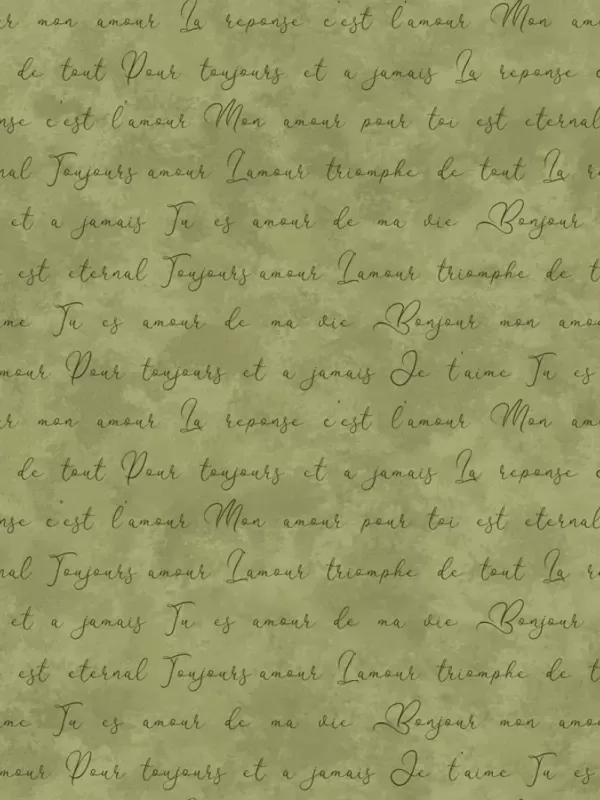 r mon amour La reponse c'est l'amour Mon am
de tout Pour toujours et a jamais La reponse c
nse c'est l'amour Mon amour pour toi est eternal
nal Toujours amour Lamour triomphe de tout La r
et a jamais Tu es amour de ma vie Bonjour
est eternal Toujours amour Lamour triomphe de t
me Tu es amour de ma vie Bonjour mon amo
mour Pour toujours et a jamais Je t'aime Tu es
r mon amour La reponse c'est l'amour Mon am
de tout Pour toujours et a jamais La reponse c
nse c'est l'amour Mon amour pour toi est eternal
nal Toujours amour Lamour triomphe de tout La r
et a jamais Tu es amour de ma vie Bonjour
est eternal Toujours amour Lamour triomphe de t
me Tu es amour de ma vie Bonjour mon amo
mour Pour toujours et a jamais Je t'aime Tu es